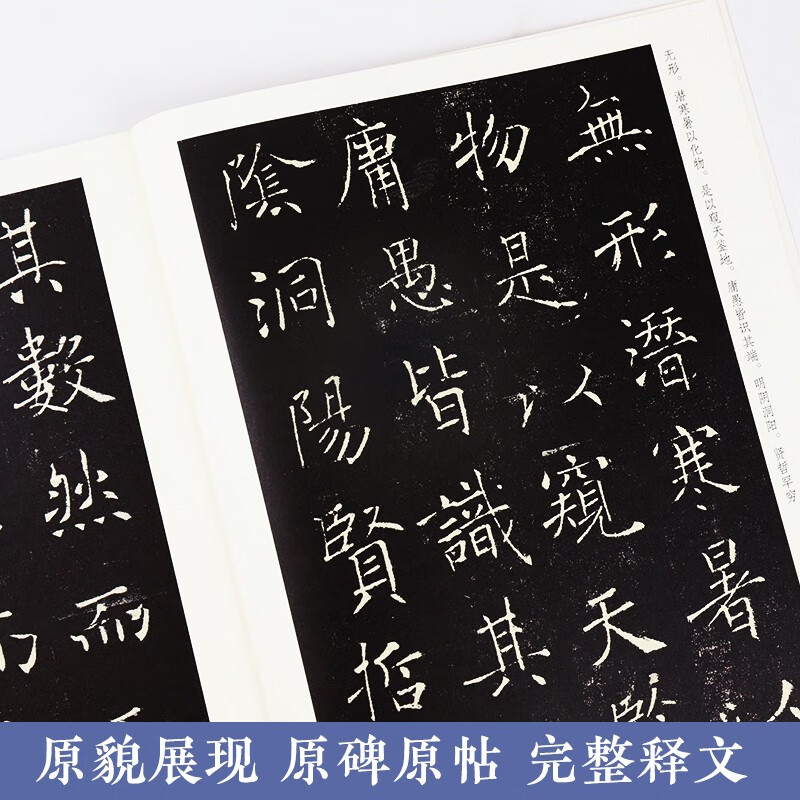 无形。潜寒暑以化物。是以窥天鉴地。庸愚皆识其端。明阴洞阳。贤哲罕穷
無形潛寒暑
物是以窺天
庸愚皆識其
陰洞陽賢哲
其數然而
原貌展现 原碑原帖 完整释文